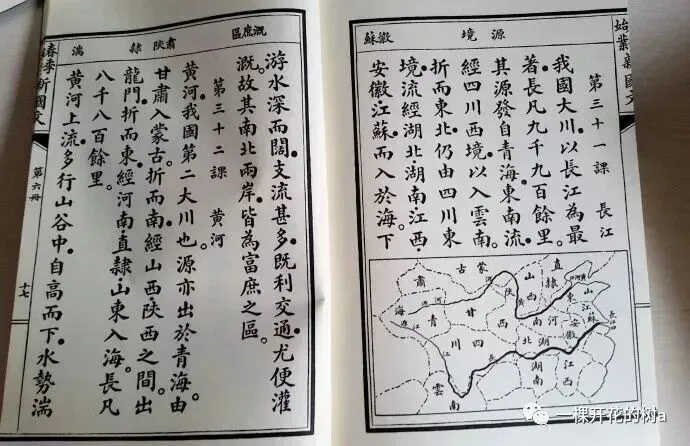 始業新國文
源 境 徽蘇
第三十一課 長江
我國大川。以長江為最
著。長凡九千九百餘里。
其源發自青海。東南流。
經四川西境。以入雲南。
折而東北。仍由四川東
境。流經湖北·湖南·江西·
安徽·江蘇而入於海。下
蒙古
肅
直隸
山西
陝西
山東
甘
青海
河南
江蘇
安徽
四川
湖北
湖南
江西
雲南
溉庶區 肅陝 隸 湍
游水深而闊。支流甚多。既利交通。尤便灌
溉。故其南北兩岸。皆為富庶之區。
第三十二課 黄河
黄河。我國第二大川也。源亦出於青海。由
甘肅入蒙古。折而南。經山西·陝西之間。出
龍門。折而東。經河南·直隸·山東入海。長凡
八千八百餘里。
黄河上流。多行山谷中。自高而下。水勢湍
春季
新國文
第六册
十七
一棵开花的树a